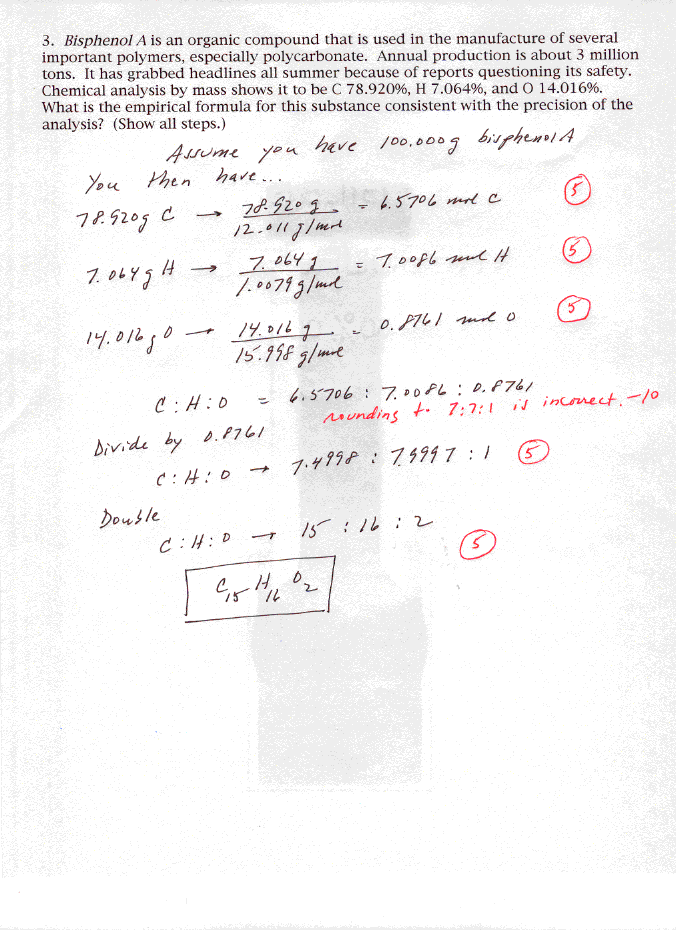 3. Bisphenol A is an organic compound that is used in the manufacture of several
important polymers, especially polycarbonate. Annual production is about 3 million
tons. It has grabbed headlines all summer because of reports questioning its safety.
Chemical analysis by mass shows it to be C 78.920%, H 7.064%, and O 14.016%.
What is the empirical formula for this substance consistent with the precision of the
analysis? (Show all steps.)
Assume you have 100.000g bisphenol A
You then have...
78.920g C → 78.920 g / 12.011 g/mol = 6.5706 mol C (5)
7.064g H → 7.064 g / 1.0079 g/mol = 7.0086 mol H (5)
14.016g O → 14.016 g / 15.998 g/mol = 0.8761 mol O (5)
C : H : O = 6.5706 : 7.0086 : 0.8761
rounding to 7:7:1 is incorrect. -10
Divide by 0.8761
C : H : O → 7.4998 : 7.9997 : 1 (5)
Double
C : H : O → 15 : 16 : 2
(5)
C15 H16 O2